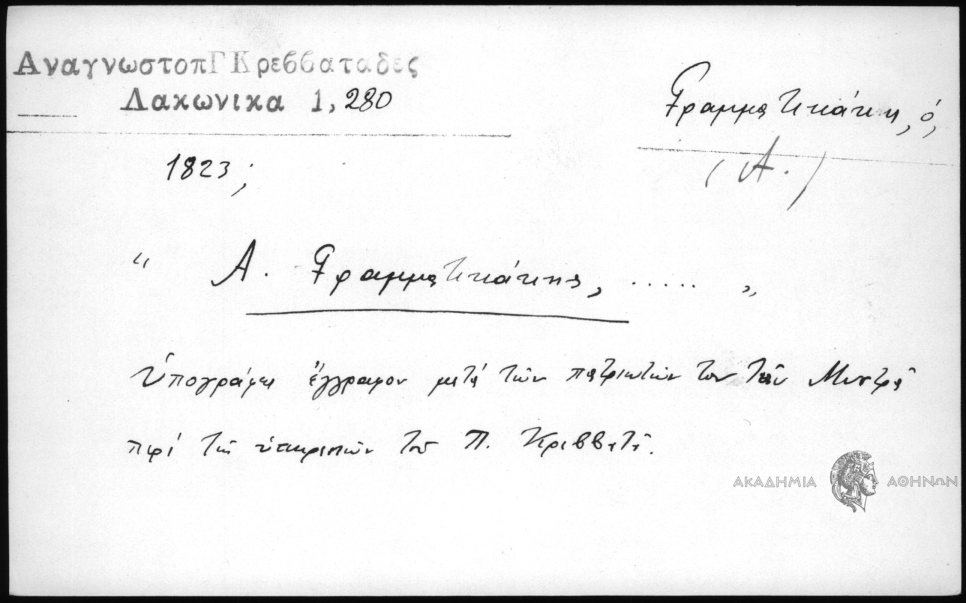 ΑναγνωστοπΓ Κρεββαταδες
Λακωνικα 1, 280
Γραμματικάκης, ὁ,
(Α.)
1823;
“ Α. Γραμματικάκης, ..... „
Ὑπογράφει ἔγγραφον μετά τῶν πατριωτῶν του τῶν Μυστρᾶ
περί τῶν τοῦ Π. Κρεββατᾶ.
ΑΚΑΔΗΜΙΑ ΑΘΗΝΩΝ